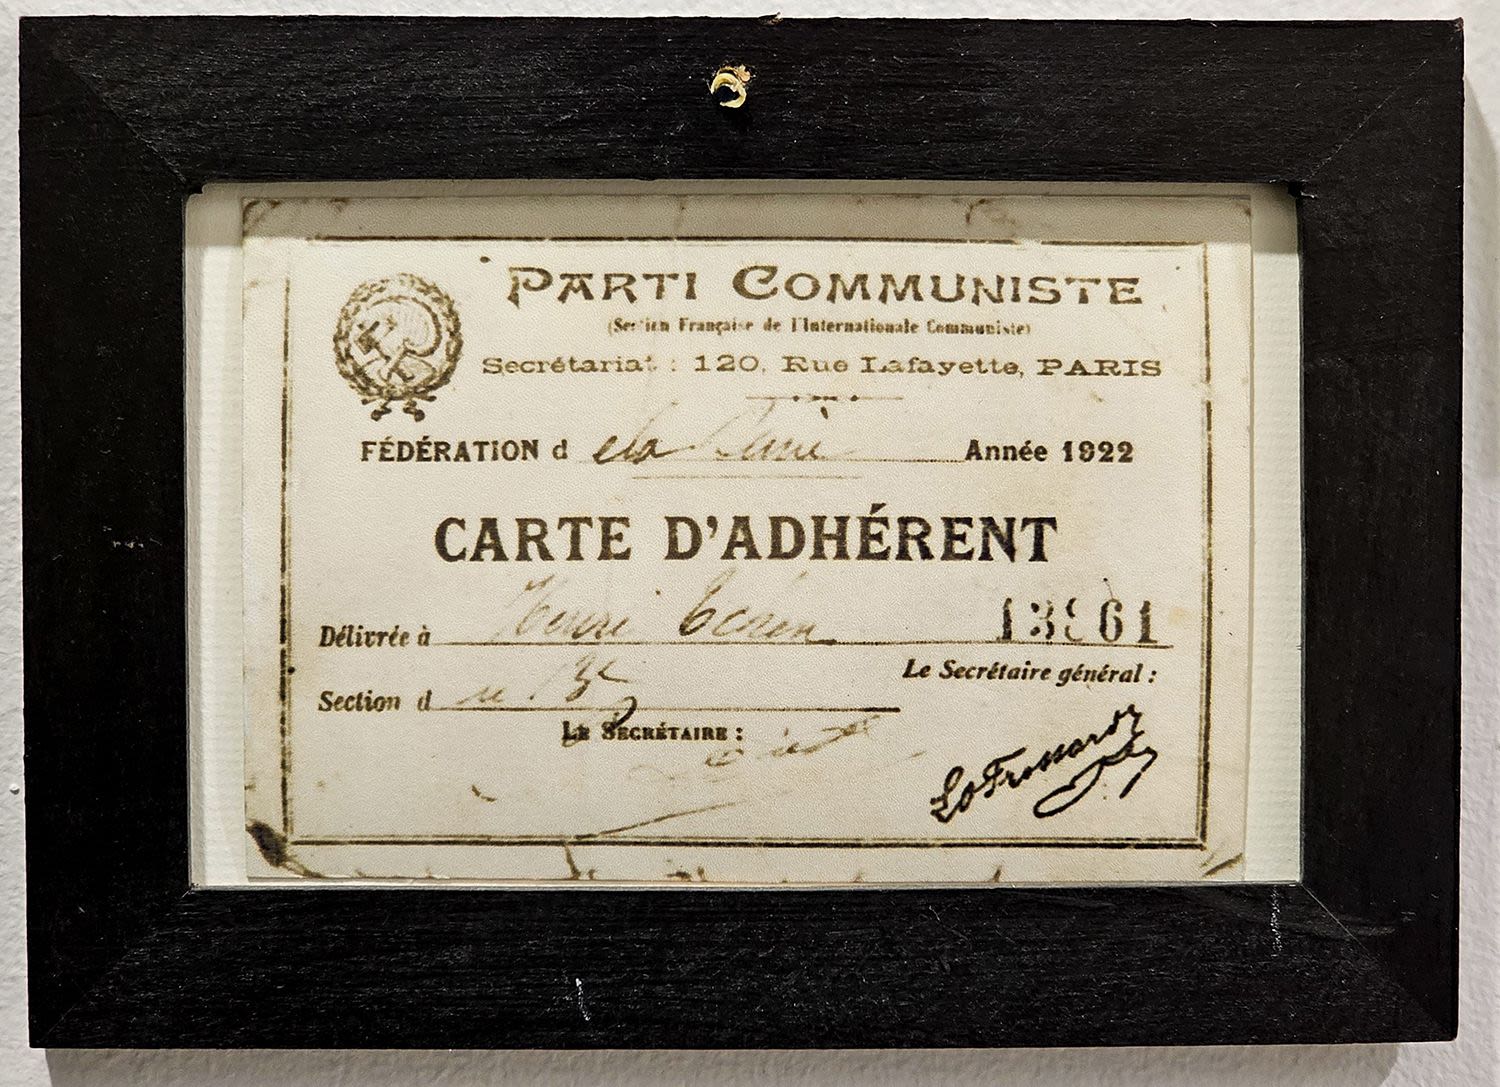 PARTI COMMUNISTE
(Section Française de l'Internationale Communiste)
Secrétariat : 120, Rue Lafayette, PARIS
FÉDÉRATION d e la Seine Année 1922
CARTE D'ADHÉRENT
Délivrée à Henri 13961
Section d u 13e
Le Secrétaire général :
LE SECRÉTAIRE :
LO Frossard